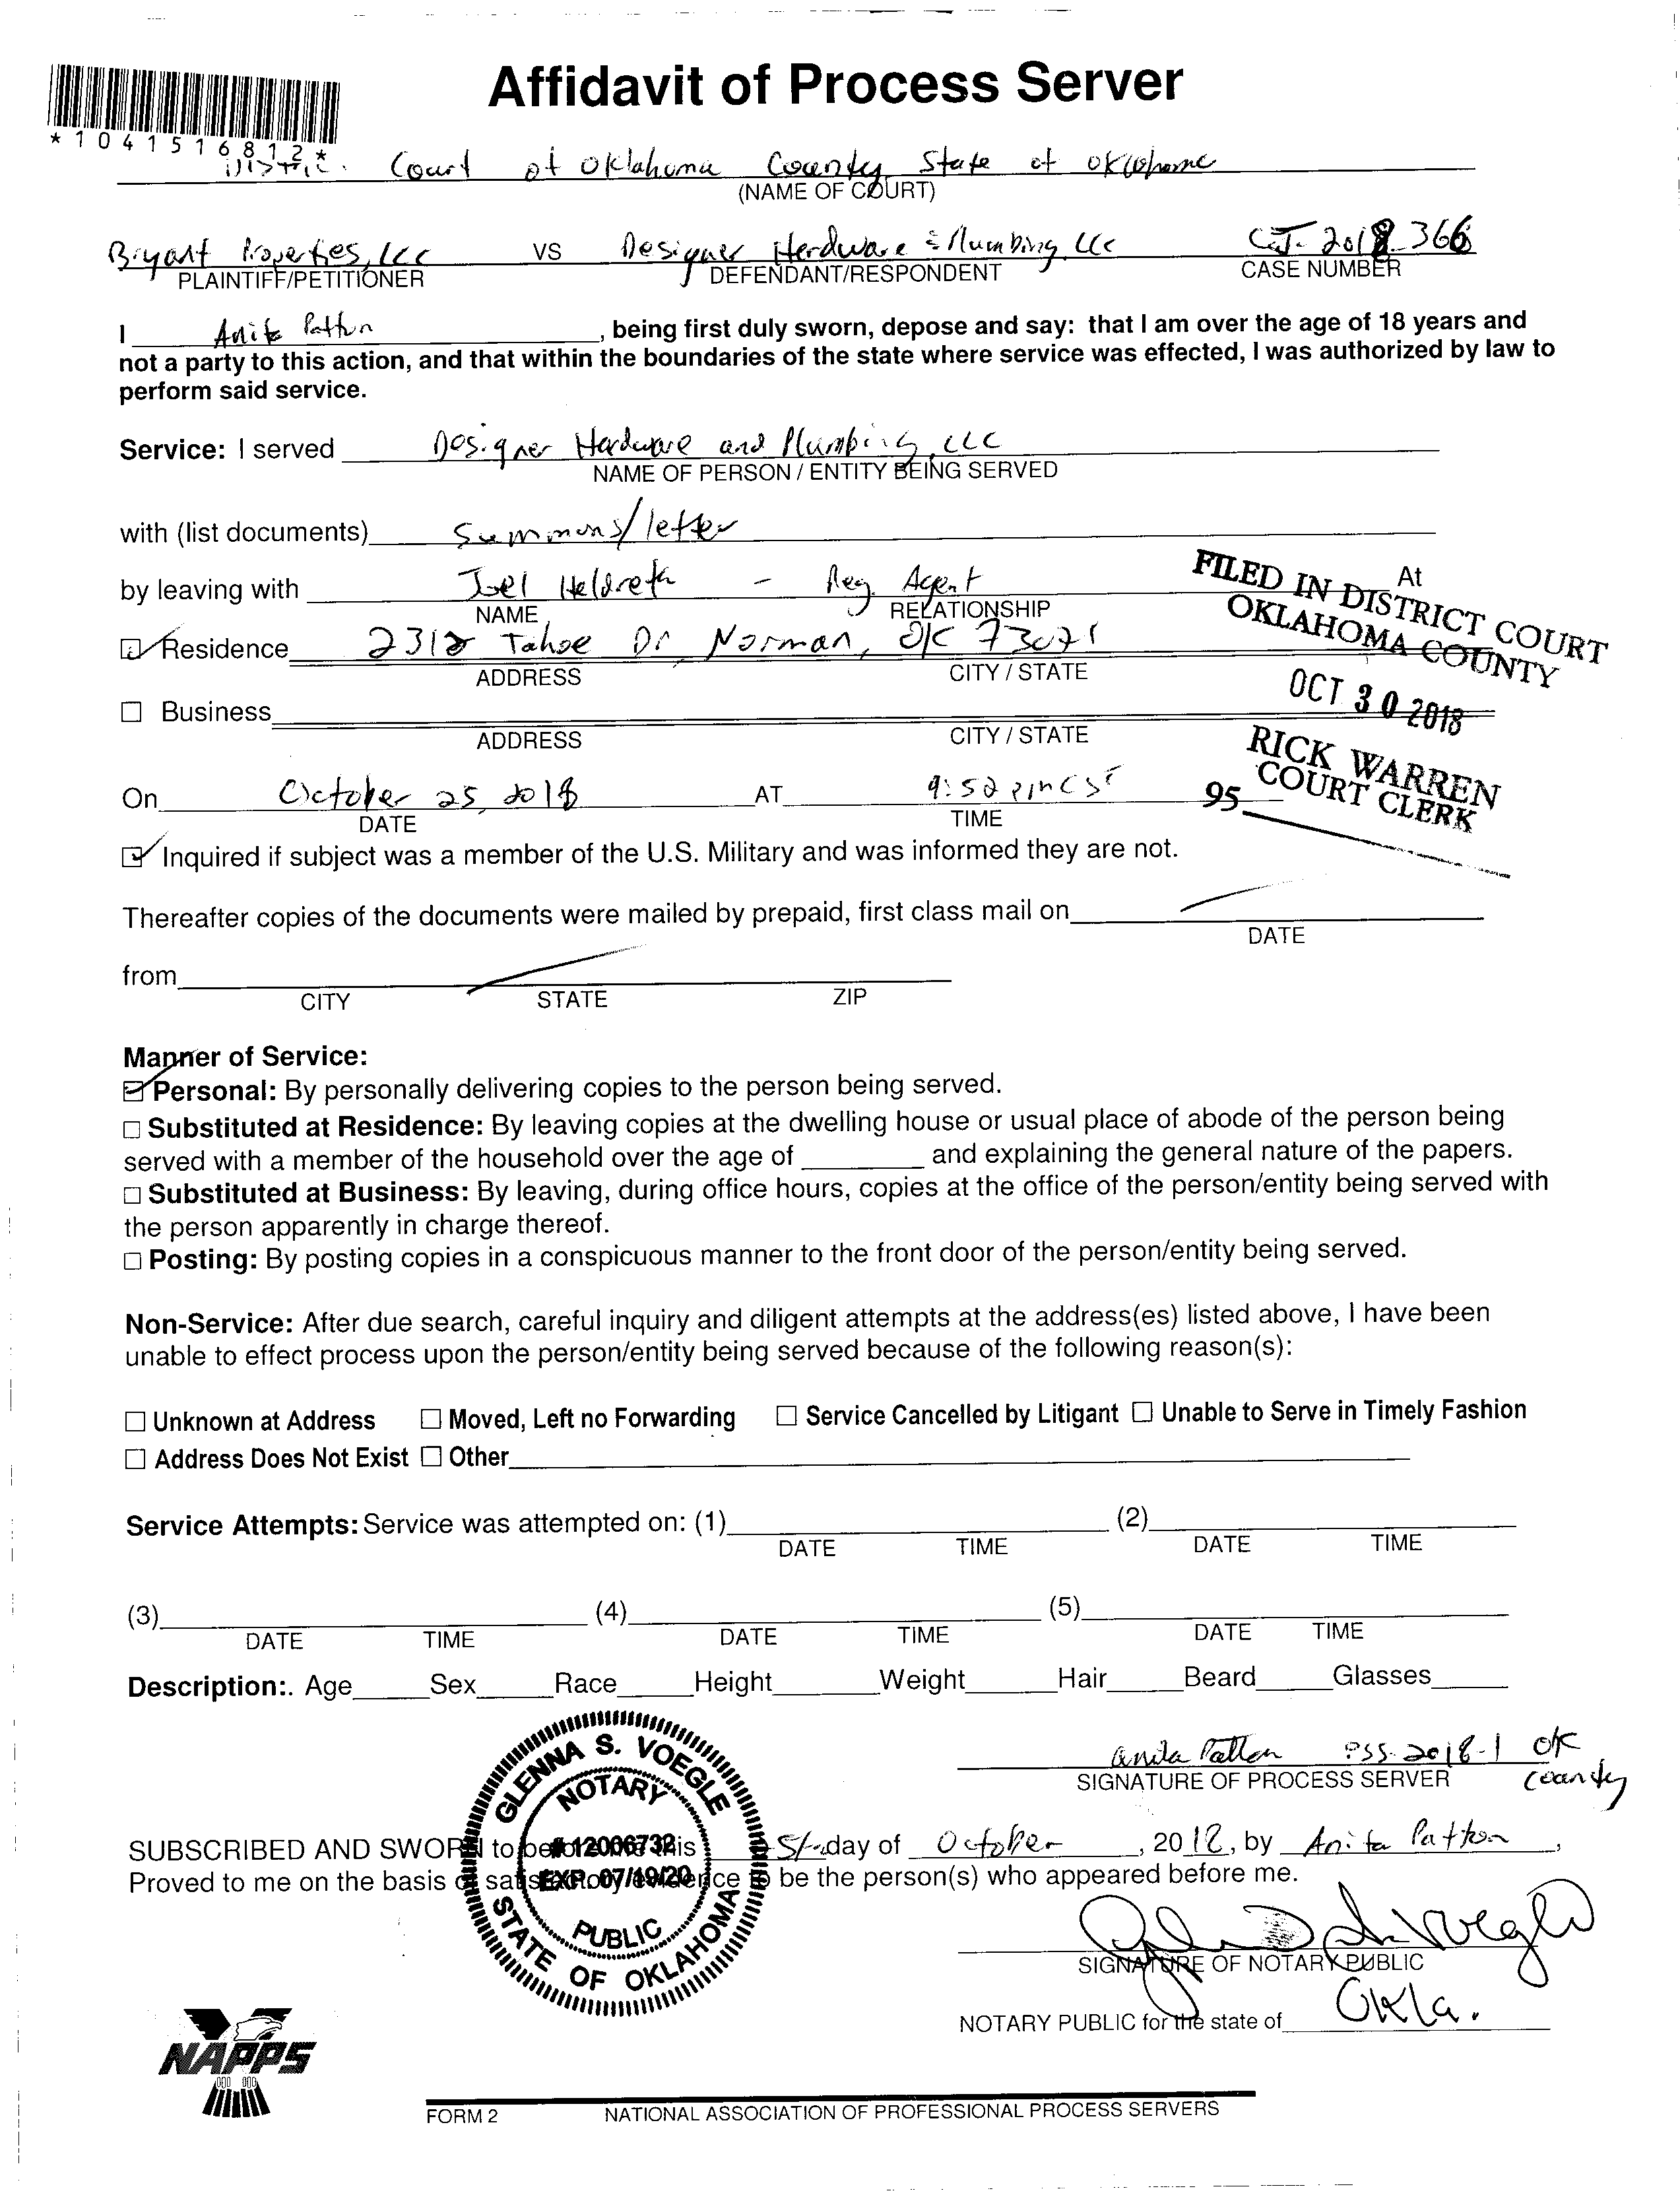 Affidavit of Process Server
*1041516812*
Court of Oklahoma County State of Oklahoma
(NAME OF COURT)
Bryant Properties, LLC VS Designer Hardware & Plumbing LLC CJ-2018-366
PLAINTIFF/PETITIONER DEFENDANT/RESPONDENT CASE NUMBER
I Anita Patton, being first duly sworn, depose and say: that I am over the age of 18 years and
not a party to this action, and that within the boundaries of the state where service was effected, I was authorized by law to
perform said service.
Service: I served Designer Hardware and Plumbing, LLC
NAME OF PERSON / ENTITY BEING SERVED
with (list documents) Summons/letter
by leaving with Joel Heldreth - Reg. Agent At
NAME RELATIONSHIP
FILED IN DISTRICT COURT
OKLAHOMA COUNTY
☑ Residence 2312 Tahoe Dr, Norman, OK 73071
ADDRESS CITY / STATE
OCT 30 2018
☐ Business
ADDRESS CITY / STATE
RICK WARREN
COURT CLERK
95
On October 25, 2018 AT 9:52 pm CST
DATE TIME
☑ Inquired if subject was a member of the U.S. Military and was informed they are not.
Thereafter copies of the documents were mailed by prepaid, first class mail on
DATE
from
CITY STATE ZIP
Manner of Service:
☑ Personal: By personally delivering copies to the person being served.
☐ Substituted at Residence: By leaving copies at the dwelling house or usual place of abode of the person being
served with a member of the household over the age of ________ and explaining the general nature of the papers.
☐ Substituted at Business: By leaving, during office hours, copies at the office of the person/entity being served with
the person apparently in charge thereof.
☐ Posting: By posting copies in a conspicuous manner to the front door of the person/entity being served.
Non-Service: After due search, careful inquiry and diligent attempts at the address(es) listed above, I have been
unable to effect process upon the person/entity being served because of the following reason(s):
☐ Unknown at Address ☐ Moved, Left no Forwarding ☐ Service Cancelled by Litigant ☐ Unable to Serve in Timely Fashion
☐ Address Does Not Exist ☐ Other
Service Attempts: Service was attempted on: (1) (2)
DATE TIME DATE TIME
(3) (4) (5)
DATE TIME DATE TIME DATE TIME
Description:. Age Sex Race Height Weight Hair Beard Glasses
Anita Patton PSS-2018-1 OK
County
SIGNATURE OF PROCESS SERVER
GLENNA S. VOEGLE
NOTARY
# 12006732
EXP. 07/19/20
PUBLIC
STATE OF OKLAHOMA
SUBSCRIBED AND SWORN to before me this day of October, 2018, by Anita Patton,
Proved to me on the basis of satisfactory evidence to be the person(s) who appeared before me.
SIGNATURE OF NOTARY PUBLIC
NOTARY PUBLIC for the state of Okla.
NAPPS
FORM 2 NATIONAL ASSOCIATION OF PROFESSIONAL PROCESS SERVERS